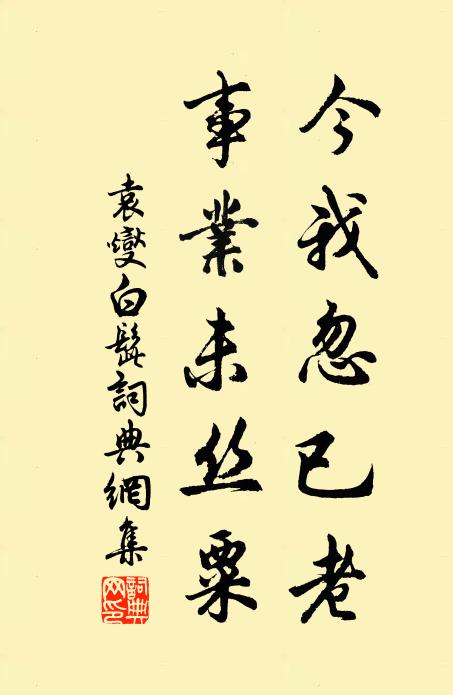 今我忽已老
事業未丝粟
袁燮白髭詞典網集
詞典网印